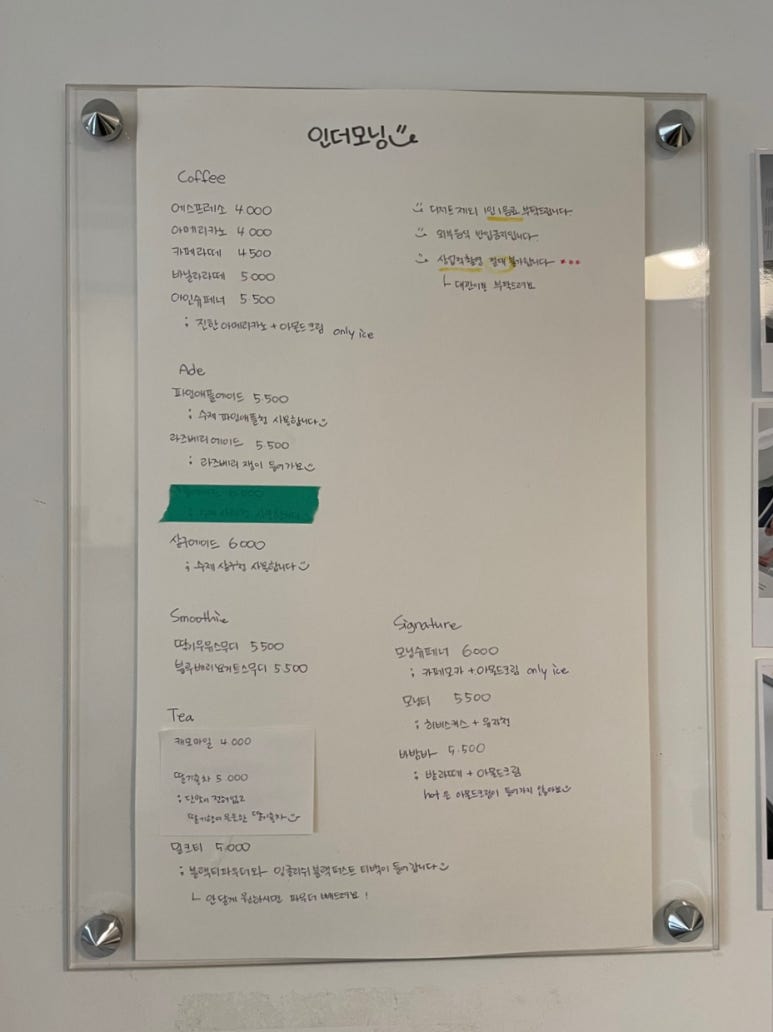 인더모닝
Coffee
에스프레소 4.000
아메리카노 4.000
카페라떼 4.500
바닐라라떼 5.000
아인슈페너 5.500
; 진한 아메리카노 + 아몬드크림 only ice
디저트 제외 1인 1음료 부탁드립니다.
외부음식 반입금지입니다.
상업적촬영 절대 불가합니다.
ㄴ 대관이용 부탁드려요
Ade
파인애플에이드 5.500
; 수제 파인애플청 사용합니다
라즈베리에이드 5.500
; 라즈베리 잼이 들어가요
6.000
살구에이드 6000
; 수제 살구청 사용합니다
Smoothie
딸기우유스무디 5500
블루베리요거트스무디 5.500
Signature
모닝슈페너 6000
; 카페모카 + 아몬드크림 only ice
모닝티 5500
; 히비스커스 + 유자청
바밤바 5.500
; 밤라떼 + 아몬드크림
hot 은 아몬드크림이 들어가지 않아요
Tea
캐모마일 4.000
딸기숲차 5.000
; 단맛이 전혀없고
딸기향이 은은한
밀크티 5.000
; 블랙티파우더와 잉글리쉬블랙퍼스트 티백이 들어갑니다
ㄴ 안달게 원하시면 파우더 빼드려요!